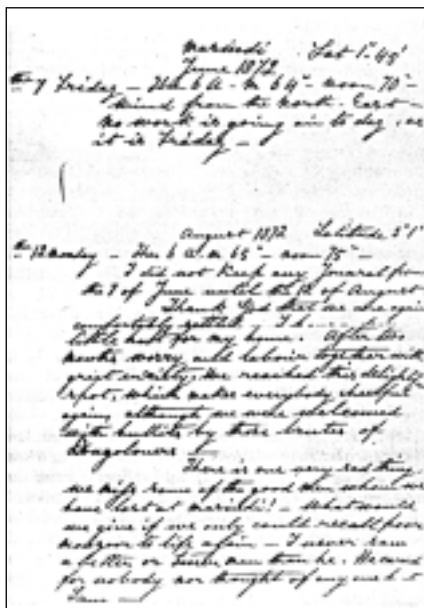 Masindi Lat 1° 45'
June 1872
the 7 Friday - Ther 6 A. m 64° - noon 70° -
Wind from the North-East -
no work is going on to day, as
it is Friday -
August 1872 Latitude 3° 1'
the 12 Monday - Ther 6 a.m 65° - noon 75° -
I did not keep any Journal from
the 7 of June until the 12 of August
Thank God that we are again
comfortably settled. I h
little hut for my home. After two
months worry and labour together with
great anxiety, we reached this delightful
spot, which makes everybody cheerful
again, although we were welcomed
with bullets by those brutes of

There is one very sad thing
we miss some of the good men which we
have lost at Masindi! - What would
we give if we only could recall poor
Monsoor to life again - I never saw
a better or man than he. He cared
for nobody nor thought of any